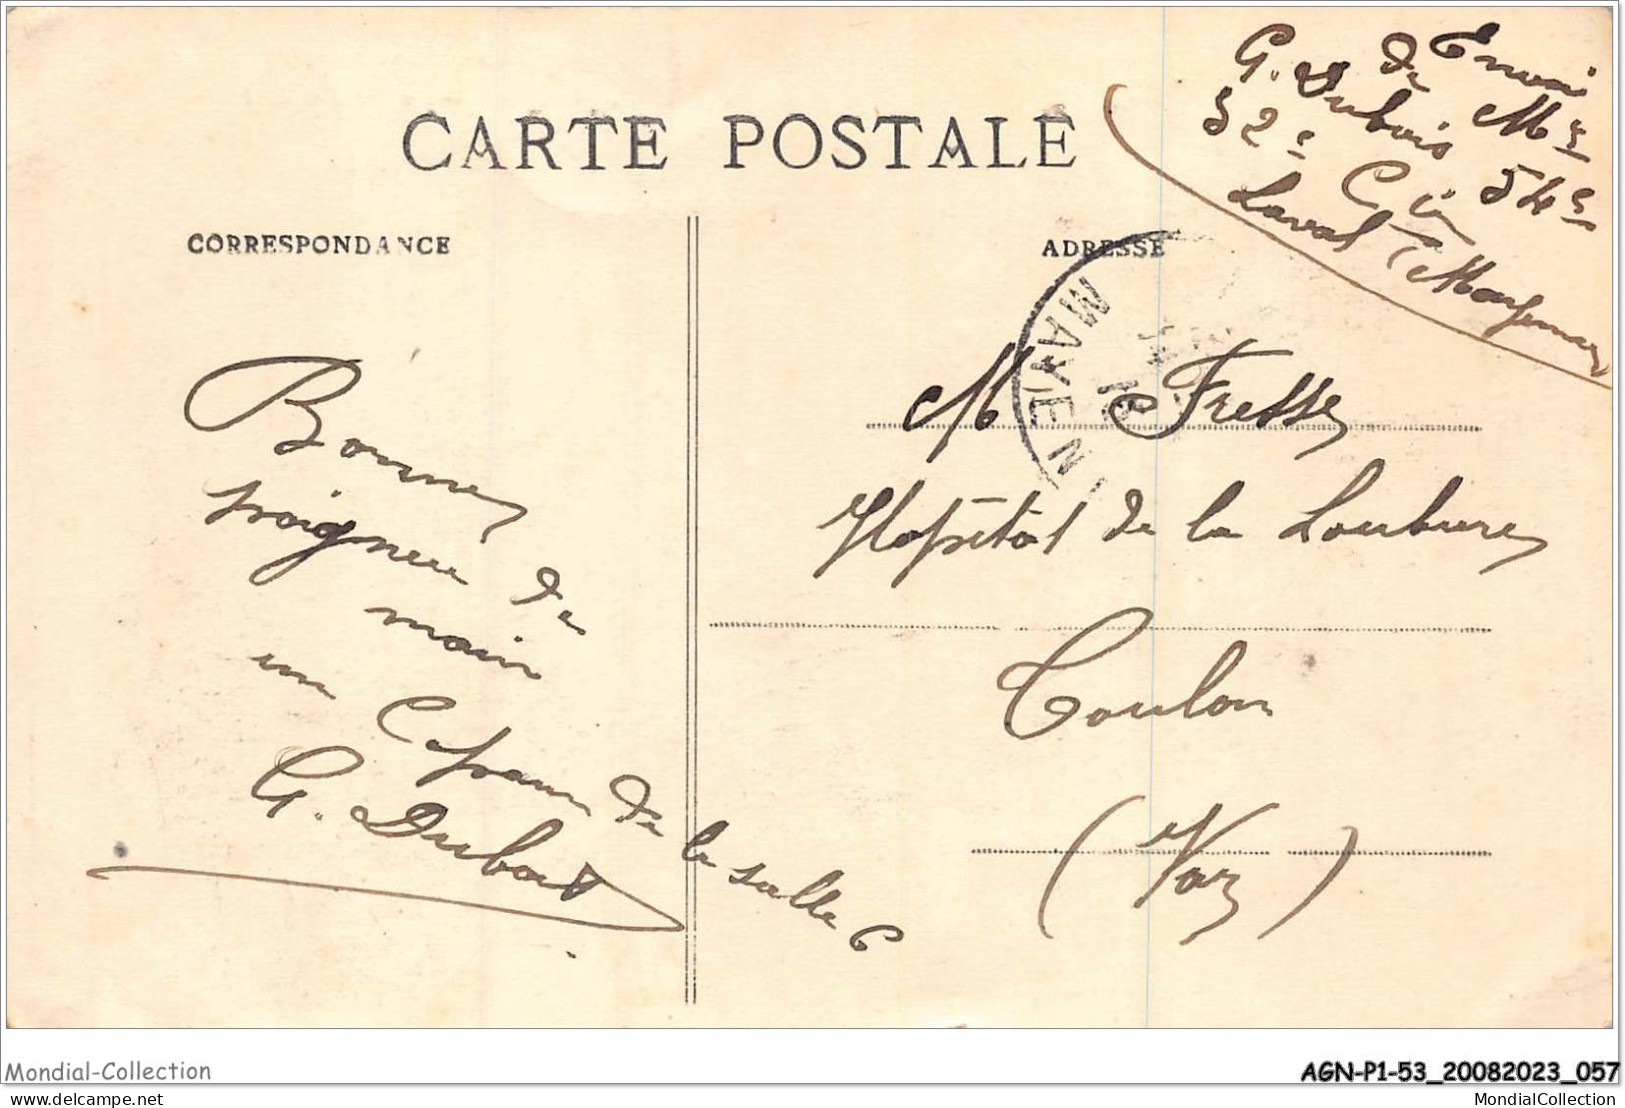 CARTE POSTALE
CORRESPONDANCE
ADRESSE
Envoi
de Mr
G. Dubois 54e
52e Cie
Laval (Mayenne)
MAYENN
M Fresse
Hopital de la Loubiere
Toulon
(Var)
Bonne
poignee de
main
un Copain de la salle 6
G. Dubois
Mondial-Collection
AGN-P1-53_20082023_057
delcampe.net
MondialCollection